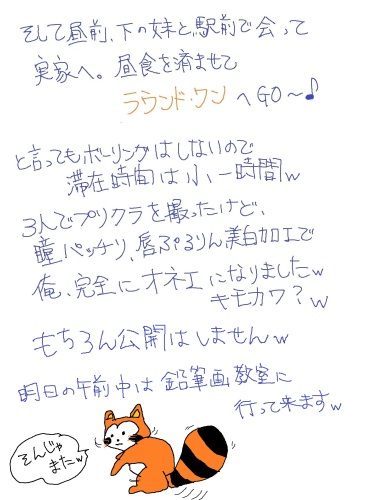 そして昼前、下の妹と駅前で会って
実家へ。昼食を済ませて
ラウンド・ワンへGO〜♪
と言ってもボーリングはしないので
滞在時間は小一時間w
3人でプリクラを撮ったけど、
瞳パッチリ、唇ぷるりん美白加工で
俺、完全にオネエになりましたw
キモカワ?w
もちろん公開はしませんw
明日の午前中は鉛筆画教室に
行って来ますw
そんじゃ
またw